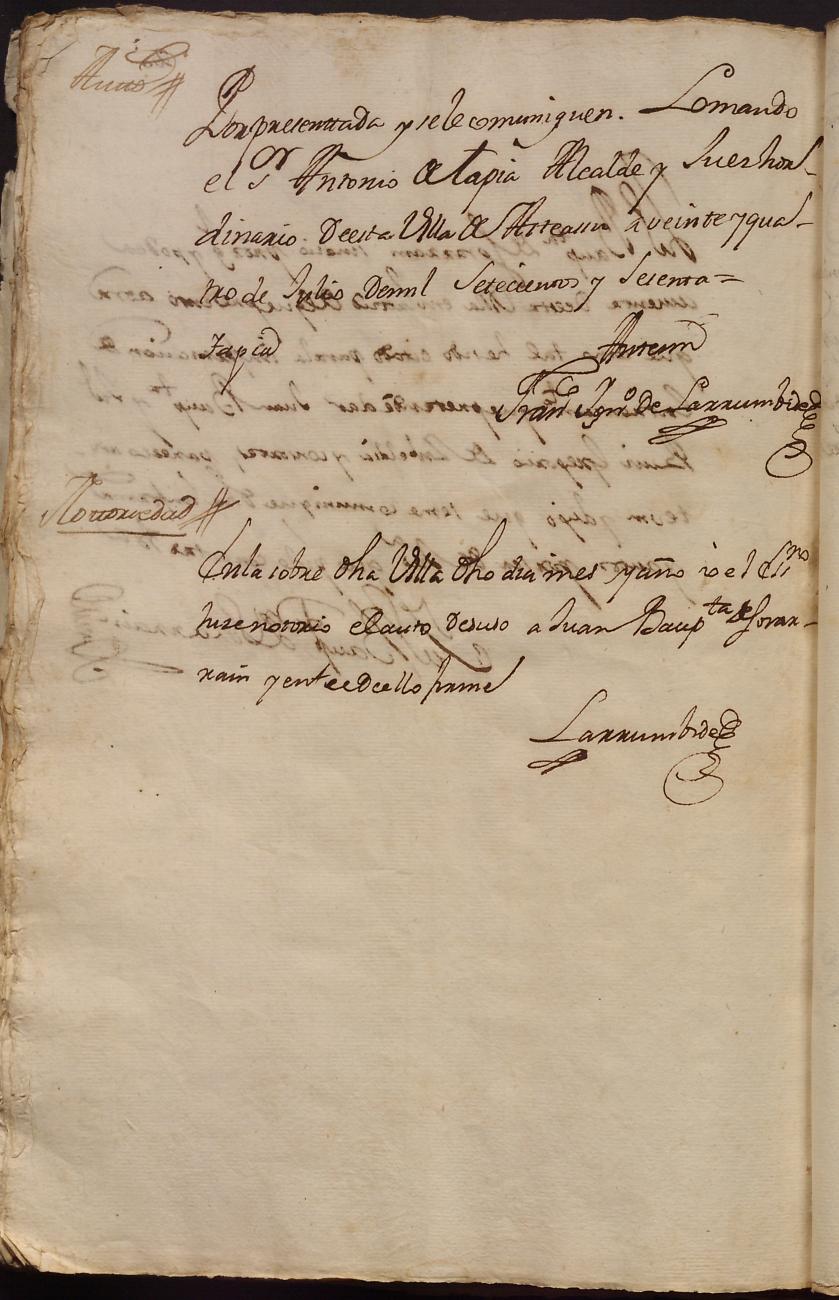 Auto
Por presenttada y se le comuniquen. Lo mando
el Sr. Antonio de tapia Alcalde y Juez hor-
dinario de esta Villa de Asteasu a veinte y qua-
tro de Julio de mil Setecientos y Sesenta =
Tapia Antemi
Franco Igno. de Larrumbide
Nottoriedad
En la sobre dha Villa dho dia mes y año io el Essno
hize notorio el auto de suso a Juan Baupta de Soraz-
rain y en fee de ello firme
Larrumbide